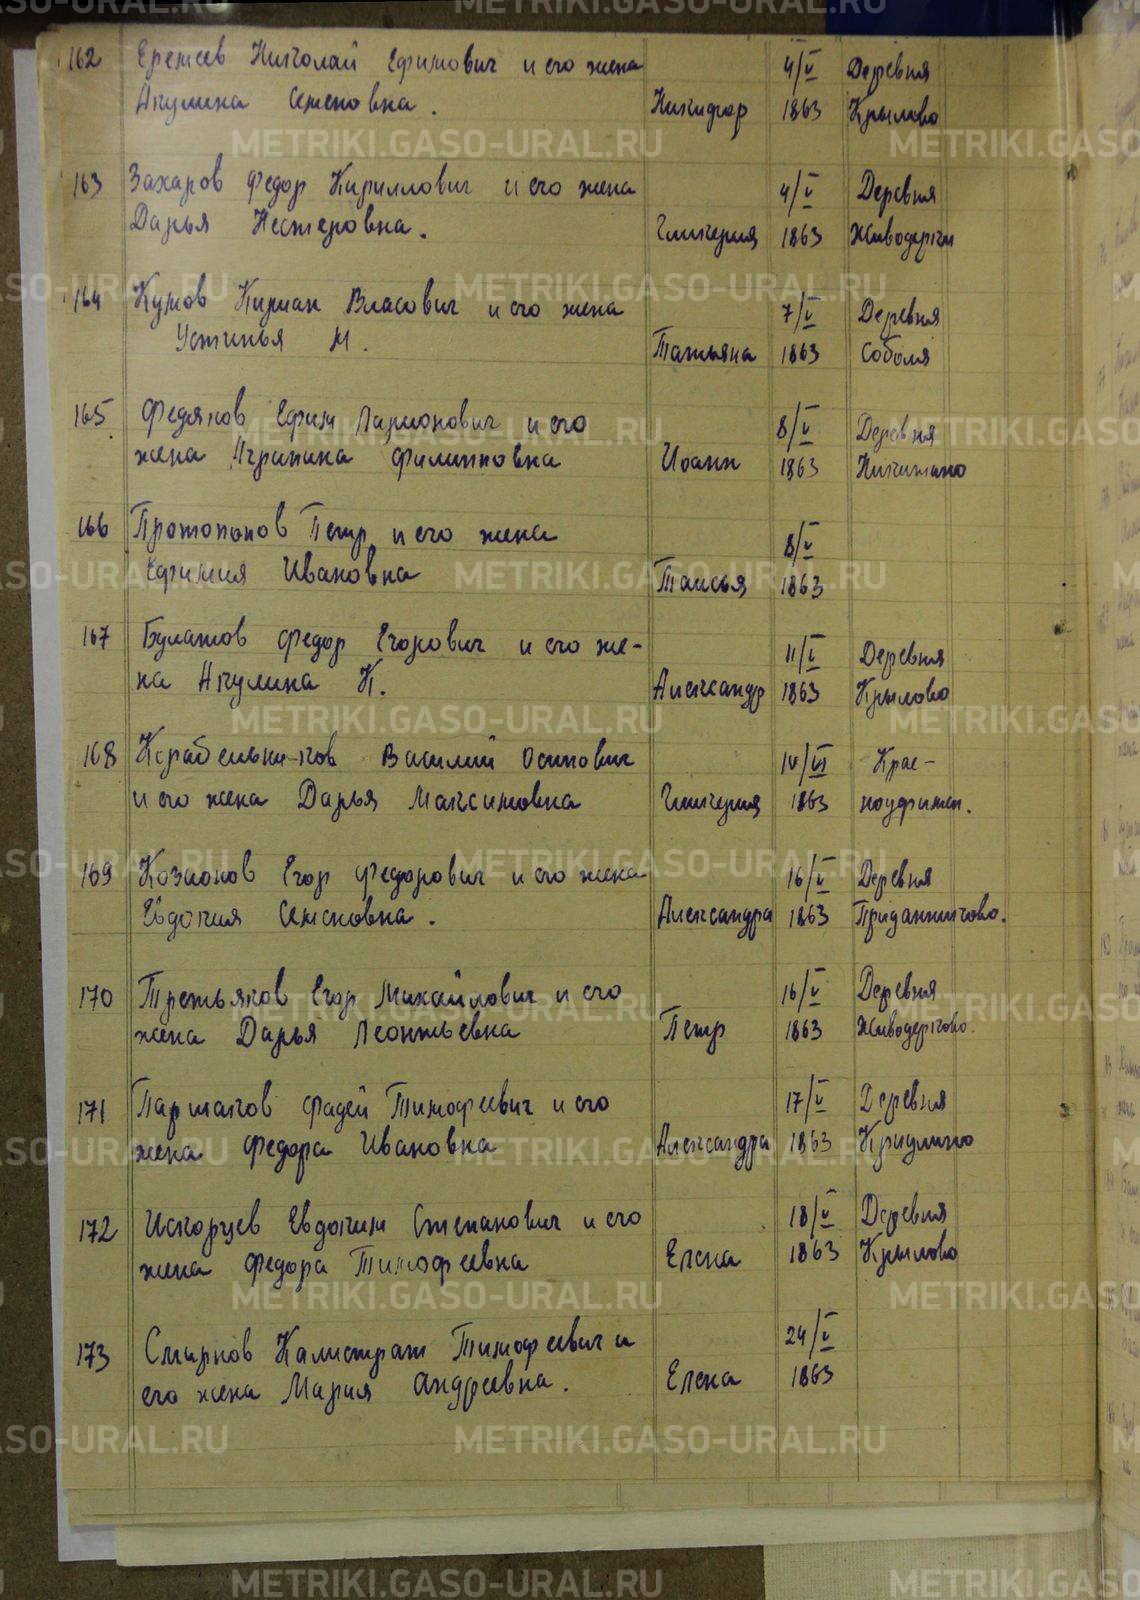 162 Еремеев Николай Ефимович и его жена 4/V Деревня
Акулина Семеновна. Никифор 1863 Крылово
163 Захаров Федор Кириллович и его жена 4/V Деревня
Дарья Нестеровна. Гликерия 1863 Живодерки
164 Кутов Кирман Власович и его жена 7/V Деревня
Устинья М. Татьяна 1863 Соболя
165 Федяков Ефим Ларионович и его 8/V Деревня
жена Агрипина Филипповна Иоанн 1863 Никитино
166 Протопопов Петр и его жена 8/V
Ефимия Ивановна Таисья 1863
167 Булатов Федор Егорович и его же- 11/V Деревня
на Акулина К. Александр 1863 Крылово
168 Корабельни-ков Василий Осипович IV/VI Крас-
и его жена Дарья Максимовна Гликерия 1863 ноуфимск.
169 Козионов Егор Федорович и его жена 16/V Деревня
Евдокия Семеновна. Александра 1863 Приданниково.
170 Третьяков Егор Михайлович и его 16/V Деревня
жена Дарья Леонтьевна Петр 1863 Живодерково.
171 Паршаков Фадей Тимофеевич и его 17/V Деревня
жена Федора Ивановна Александра 1863
172 Искорцев Евдоким Степанович и его 18/V Деревня
жена Федора Тимофеевна Елена 1863 Крылово
173 Смирнов Калистрат Тимофеевич и 24/V
его жена Мария Андреевна. Елена 1863
METRIKI.GASO-URAL.RU